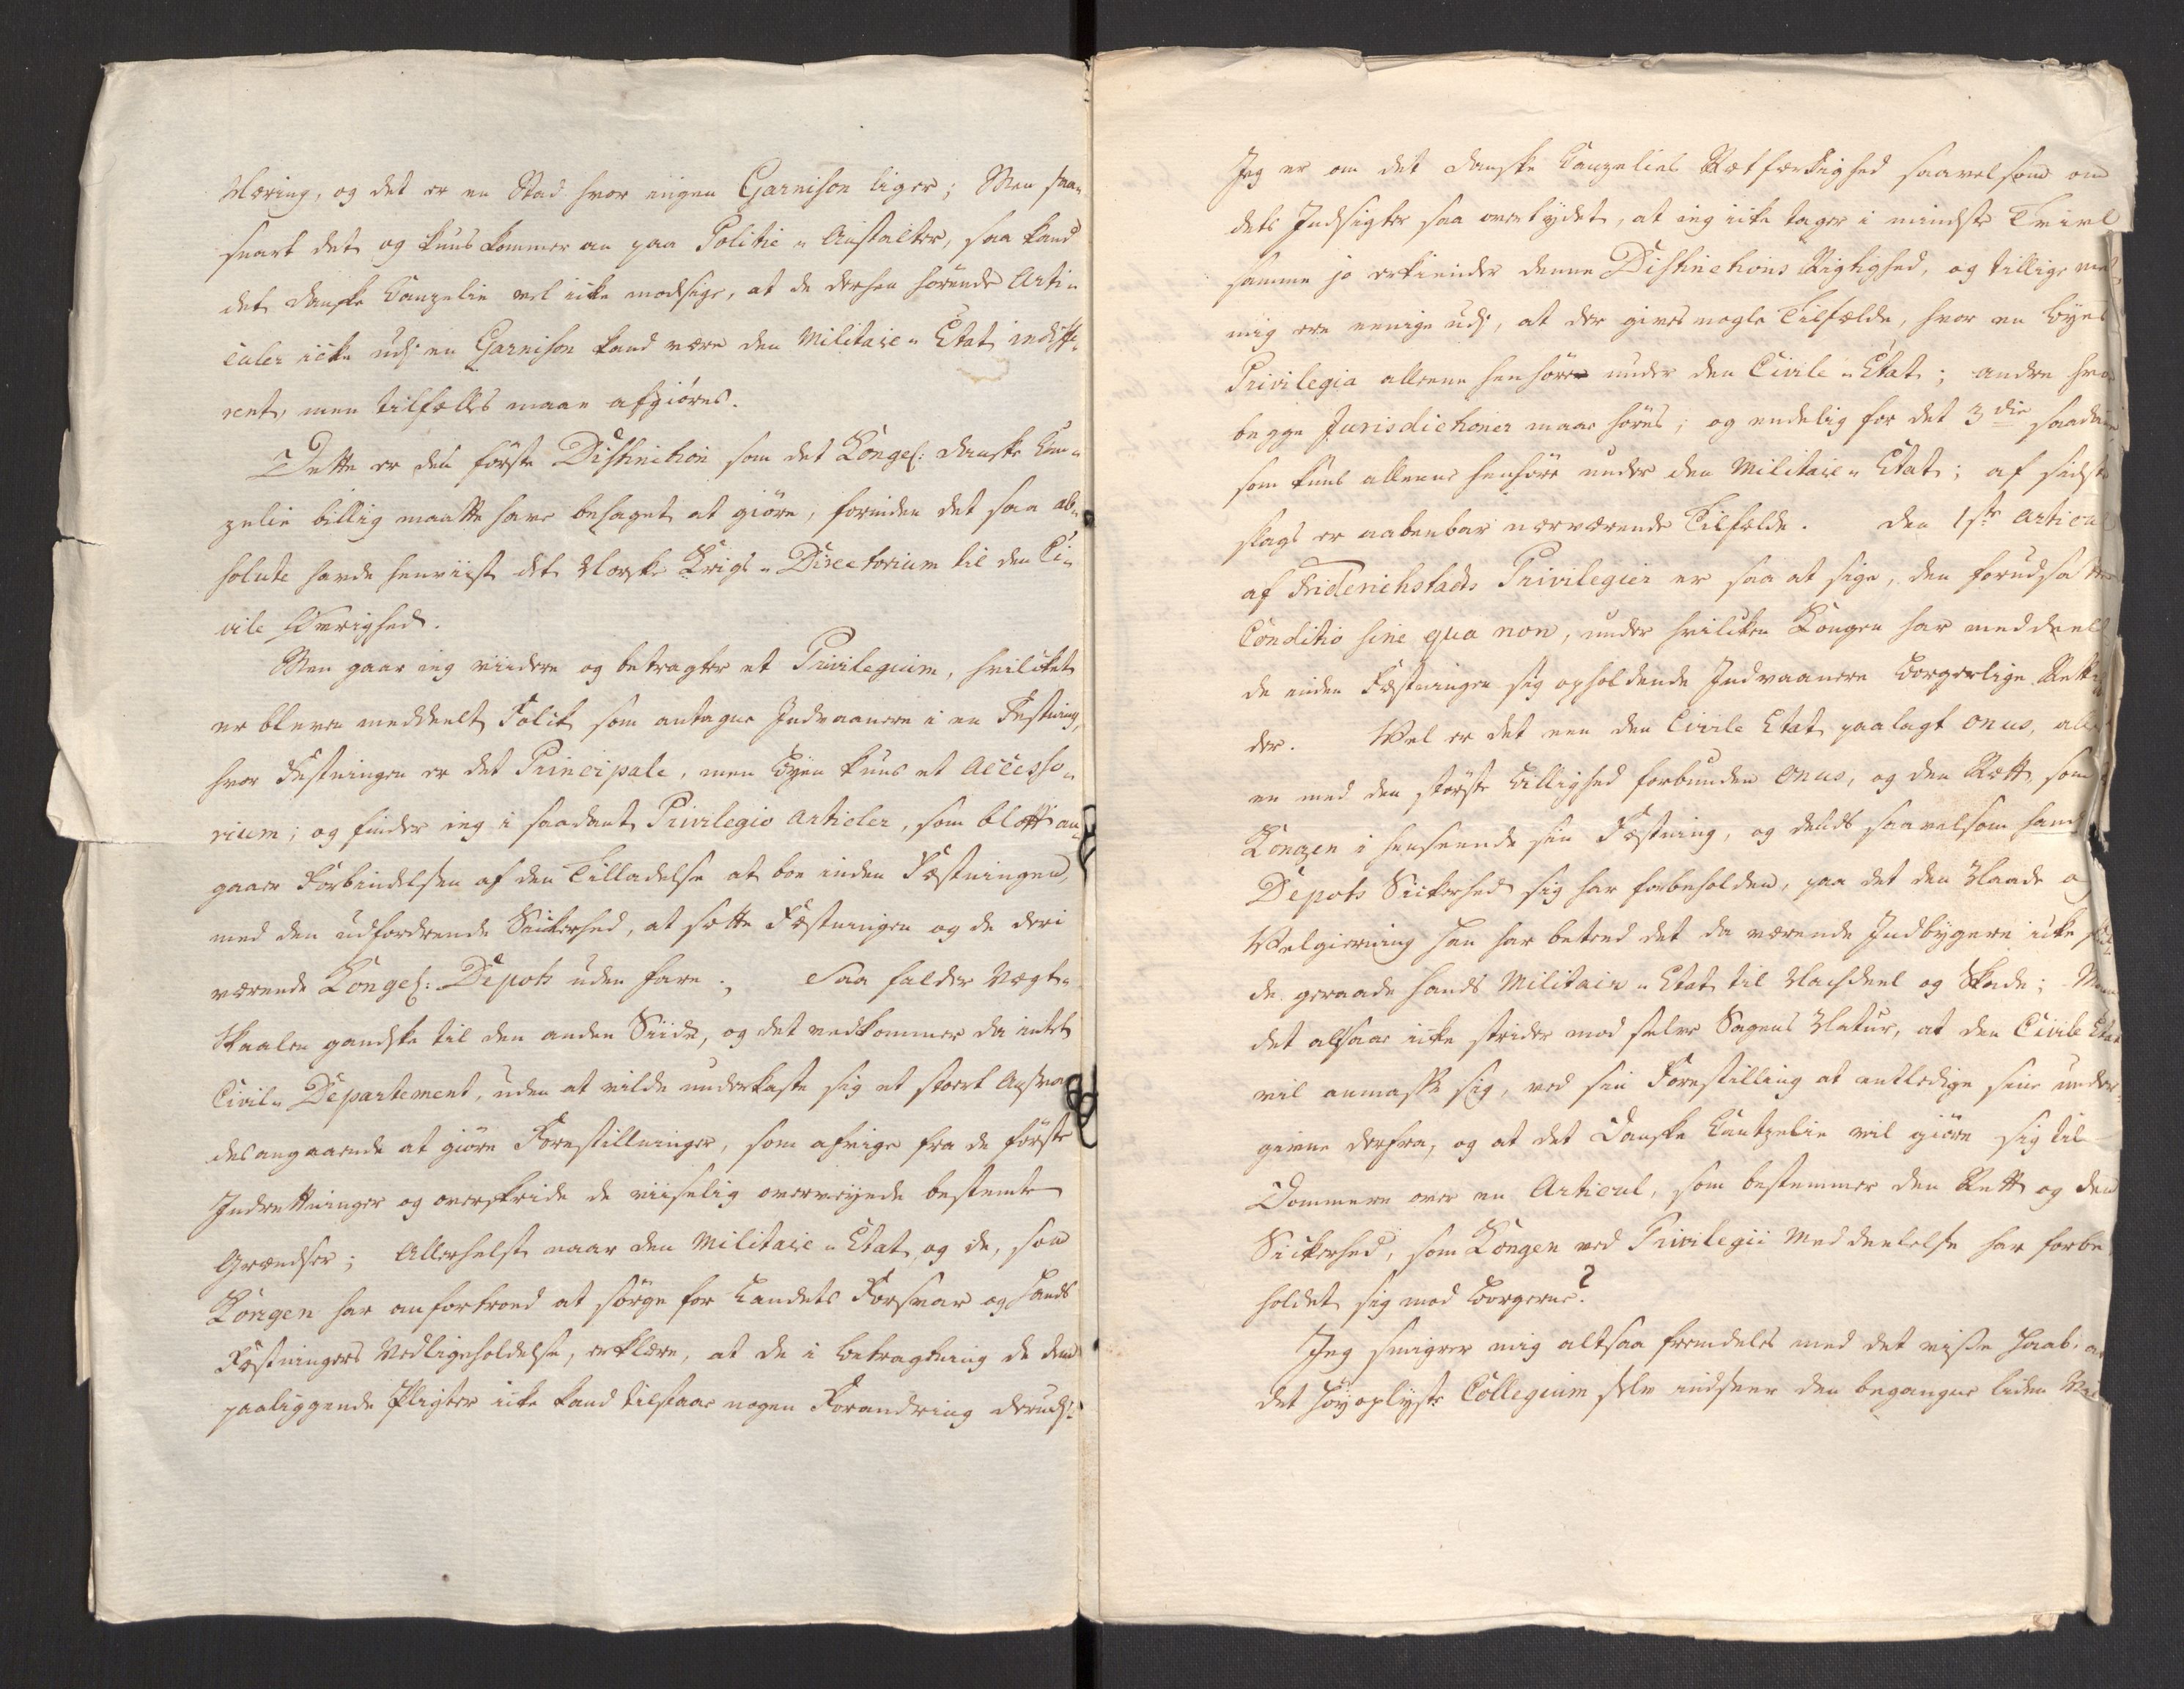 Næring, og det er en Stad hvor ingen Garnison liger; Men saa-
snart det og kuns kommer an paa Politie-Anstalter, saa kand
det danske Canzelie vel icke modsige, at de derhen hörende Arti-
culer icke udj en Garnison kand være den Militaire-Etat indiffe-
rent, men tilfælles maae afgiöres.
Dette er den förste Distinction som det Kongel: danske Can-
zelie billig maatte have behaget at giöre, forinden det saa ab-
solute havde henviist det Norske Krigs-Directorium til den Ci-
vile Övrighed.
Men gaar ieg viidere og betragter et Privilegium, hvilcket
er bleven meddeelt Folck som antagne Indvaanere i en Festning,
hvor Festningen er det Principale, men Byen kuns et Accesso-
rium; og finder ieg i saadant Privilegio Articler, som blott an-
gaaer Forbindelsen af den Tilladelse at boe inden Fæstningen,
med den udfordrende Sickerhed, at sette Fæstningen og de deri
værende Kongel: Depots uden fare; Saa falder Vægt-
Skaalen gandske til den anden Siide, og det vedkommer da intet
Civil-Departement, uden at vilde underkaste sig et stoert Ansvar
desangaaende at giöre Forestillninger, som afvige fra de förste
Indretninger og overskride de viiselig overveyede bestemte
Grændser; Allerhelst naar den Militaire-Etat og de, som
Kongen har anfortroed at sörge for Landets Forsvar og hands
Fæstningers Vedligeholdelse, erklære, at de i betragtning de dem
paaliggende Pligter icke kand tilstaae nogen Forandring derudj.
Jeg er om det danske Canzelies Retfærdighed saavelsom om
dets Indsigter saa overtydet, at ieg icke tager i mindste Tvivl
samme jo erkiender denne Distinctions Rigtighed, og tillige med
mig ere eenige udj, at der gives nogle Tilfælde, hvor en byes
Privilegia alleene henhöre under den Civile-Etat; andre hvor
begge Jurisdictioner maae höres; og endelig for det 3die saadanne
som kuns alleene henhöre under den Militaire-Etat; af sidste
slags er aabenbar nærværende Tilfælde. Den 1ste Articul
af Friderichstads Privilegier er saa at sige, den forudsatte
Conditio sine qua non, under hvilcken Kongen har meddeelt
de inden Fæstningen sig opholdende Indvaanere borgerlige Rettig-
der. Vel er det een den Civile Etat paalagt onus, alle
en med den störste billighed forbunden onus, og den Rett som
Kongen i henseende sin Fæstning, og dends saavelsom hands
Depots Sickerhed sig har forbeholden, paa det den Naade og
Velgierning han har beteed det da værende Indbygere icke skul-
de geraade hands Militair-Etat til Nachdeel og Skade; Men
det altsaae icke strider mod selve Sagens Natur, at den Civile Etat
vil anmasse sig, ved sin Forestilling at entledige sine under-
givne derfra, og at det Danske Cantzelie vil giöre sig til
Dommere over en Articul, som bestemmer den Rett og den
Sickerhed, som Kongen ved Privilegii Meddeelelse har forbe
holdet sig mod Borgerne?
Jeg smigrer mig altsaa fremdeles med det visse Haab, at
det höyoplyste Collegium selv indseer den begangne liden